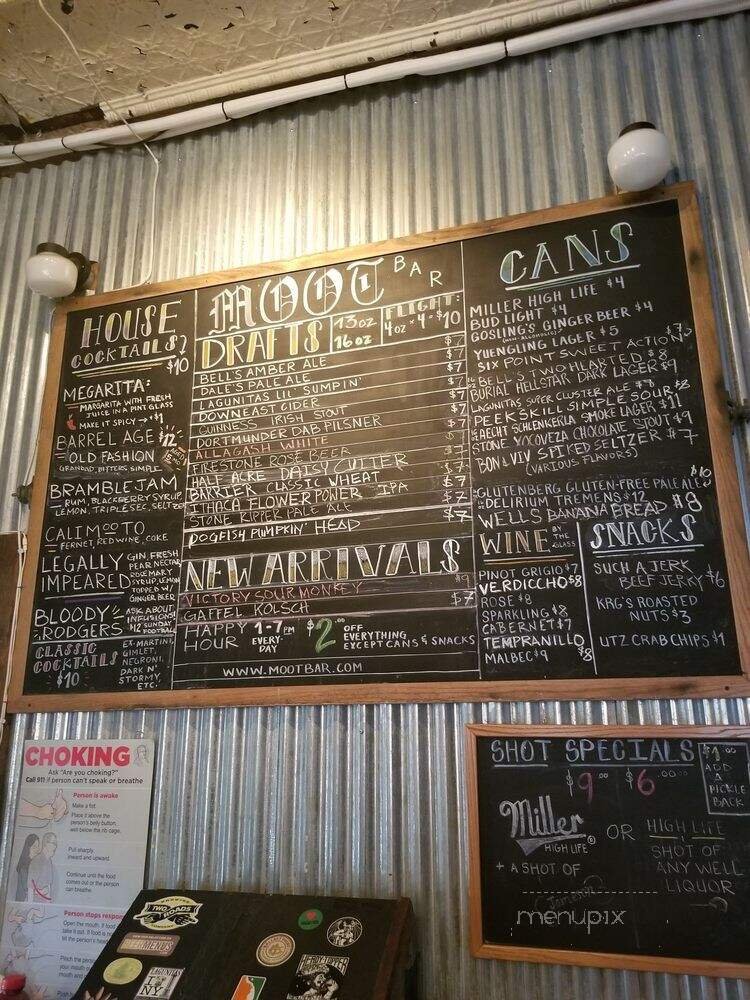 MOOT BAR
HOUSE
COCKTAILS
$10
MEGARITA:
MARGARITA WITH FRESH
JUICE IN A PINT GLASS
MAKE IT SPICY → +$1
BARREL AGE $12
OLD FASHION
GRANDAD, BITTERS, SIMPLE
BRAMBLE JAM
RUM, BLACKBERRY SYRUP,
LEMON, TRIPLE SEC, SELTZER
CALIMOOTO
FERNET, RED WINE, COKE
LEGALLY
IMPEARED
GIN, FRESH
PEAR NECTAR
ROSEMARY
SYRUP, LEMON
TOPPED W/
GINGER BEER
BLOODY
RODGERS
ASK ABOUT
INFUSIONS!
$12 SUNDAY
FOOTBALL
CLASSIC
COCKTAILS
$10
EX: MARTINI,
GIMLET,
NEGRONI,
DARK N'
STORMY,
ETC.
DRAFTS
13 OZ
16 OZ
FLIGHT:
4 OZ × 4 = $10
BELL'S AMBER ALE $7
DALE'S PALE ALE $7
LAGUNITAS LIL SUMPIN' $7
DOWNEAST CIDER $7
GUINNESS IRISH STOUT $7
DORTMUNDER DAB PILSNER $7
ALLAGASH WHITE
FIRESTONE ROSE BEER
HALF ACRE DAISY CUTTER $7
BARRIER CLASSIC WHEAT $7
ITHACA FLOWER POWER IPA $7
STONE RIPPER PALE ALE $7
DOGFISH PUMPKIN' HEAD $7
NEW ARRIVALS
VICTORY SOUR MONKEY $9
GAFFEL KOLSCH $7
HAPPY HOUR 1-7PM EVERY DAY $2.00 OFF EVERYTHING EXCEPT CANS & SNACKS
WWW.MOOTBAR.COM
CANS
MILLER HIGH LIFE $4
BUD LIGHT $4
GOSLING'S GINGER BEER $4
(NON-ALCOHOLIC)
YUENGLING LAGER $5
SIX POINT SWEET ACTION
BELL'S TWO HEARTED $8
BURIAL HELLSTAR DARK LAGER $9
LAGUNITAS SUPER CLUSTER ALE $8
PEEKSKILL SIMPLE SOUR $8
AECHT SCHLENKERLA SMOKE LAGER $11
STONE XOCOVEZA CHOCOLATE STOUT $9
BON & VIV SPIKED SELTZER $7
(VARIOUS FLAVORS)
GLUTENBERG GLUTEN-FREE PALE ALE $10
DELIRIUM TREMENS $12
WELLS BANANA BREAD $8
WINE BY THE GLASS
PINOT GRIGIO $7
VERDICCHIO $8
ROSE $8
SPARKLING $8
CABERNET $7
TEMPRANILLO $8
MALBEC $9
SNACKS
SUCH A JERK
BEEF JERKY $6
KRG'S ROASTED
NUTS $3
UTZ CRAB CHIPS $1
SHOT SPECIALS
$1.00
ADD
A
PICKLE
BACK
$9.00 $6.00
Miller
HIGH LIFE
+ A SHOT OF
Jameson
OR
HIGH LIFE
SHOT OF
ANY WELL
LIQUOR
menupix
CHOKING
Ask "Are you choking?"
Call 911 if person can't speak or breathe
Person is awake
Make a fist.
Place it above the
person's belly button,
well below the rib cage.
Pull sharply
inward and upward.
Continue until the food
comes out or the person
can breathe.
Person stops respon
Open the mouth. If food
take it out. If food is no
tilt the person's head
TWO ROADS
BEERMENUS
LAGUNITAS
NY
HEADY TOPPER